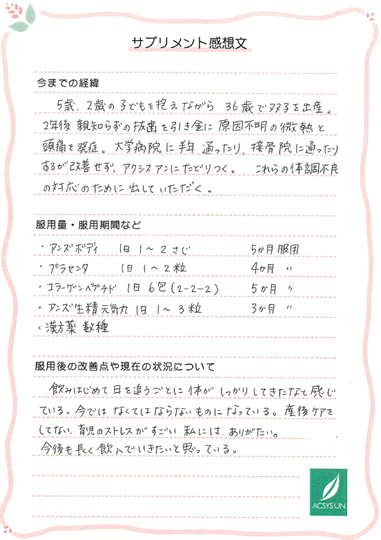 サプリメント感想文
今までの経緯
5歳、2歳の子どもを抱えながら 36歳で双子を出産。
2年後 親知らずの抜歯を引き金に 原因不明の微熱と
頭痛を発症。大学病院に半年 通ったり、接骨院に通ったり
するが改善せず、アクシスアンにたどりつく。 これらの体調不良
の対応のために 出していただく。
服用量・服用期間など
・アンズボディ 1日 1〜2 さじ 5か月 服用
・プラセンタ 1日 1〜2 粒 4か月 〃
・コラーゲンペプチド 1日 6包 (2-2-2) 5か月 〃
・アンズ生精元気力 1日 1〜3 粒 3か月 〃
・漢方薬 数種
服用後の改善点や現在の状況について
飲みはじめて 日を追うごとに 体が しっかりしてきたなと感じ
ている。今では なくてはならないものに なっている。産後ケアを
してない、育児のストレスがすごい 私には、ありがたい。
今後も長く飲んでいきたいと思っている。
ACSYSUN